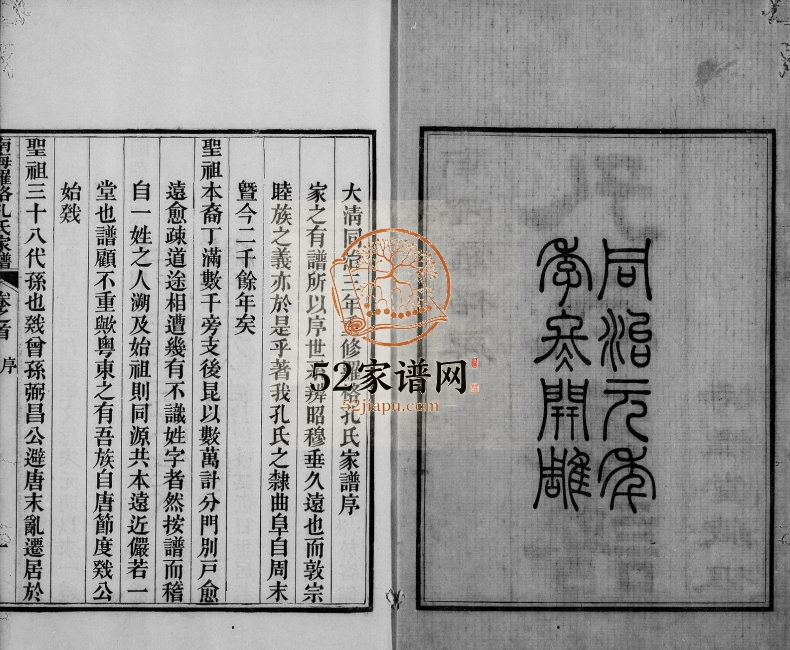 同治元年
季冬開雕
大清同治三年重修羅格孔氏家譜序
家之有譜所以序世系辨昭穆垂久遠也而敦宗
睦族之義亦於是乎著我孔氏之隸曲阜自周末
暨今二千餘年矣
聖祖本裔丁滿數千旁支後昆以數萬計分門別戸愈
遠愈疏道途相遭幾有不識姓字者然按譜而稽
自一姓之人溯及始祖則同源共本遠近儼若一
堂也譜顧不重歟粵東之有吾族自唐節度戣公
始戣
聖祖三十八代孫也戣曾孫弼昌公避唐末亂遷居於
南海羅格孔氏家譜 卷之首 序 一
52家谱网
52jiapu.com